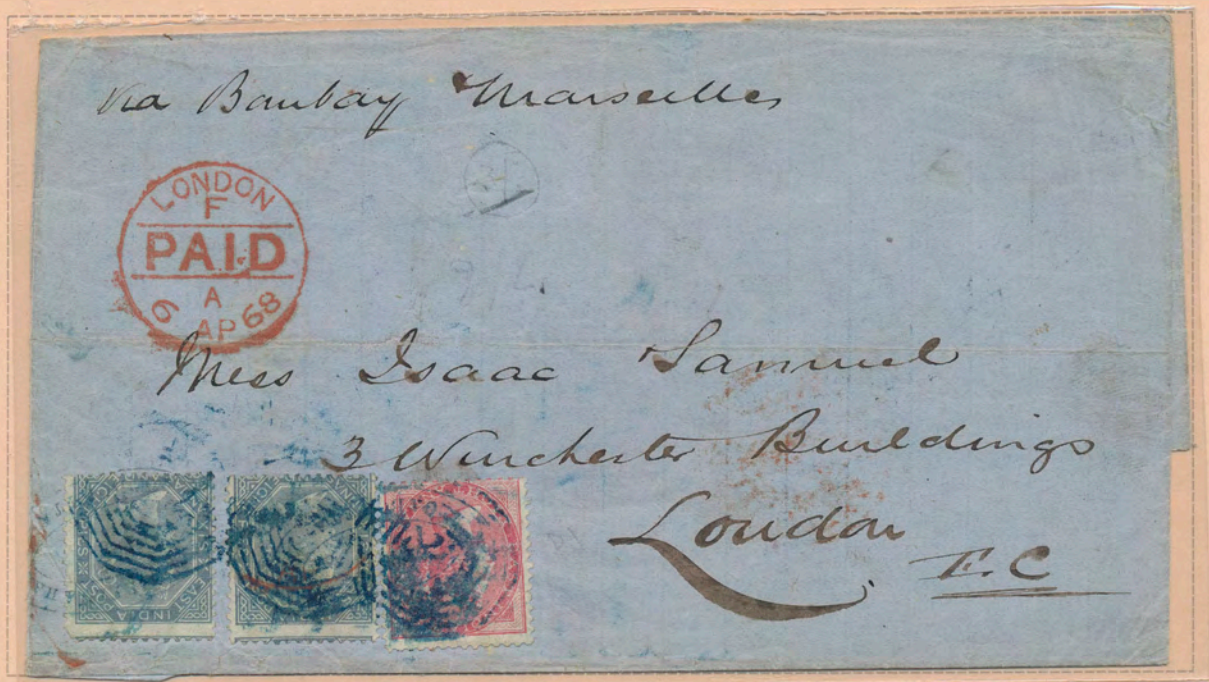 via Bombay Marseilles
LONDON
F
PAID
A
6 AP 68
Mess Isaac Samuel
3 Winchester Buildings
London
E.C
EAST INDIA
POSTAGE